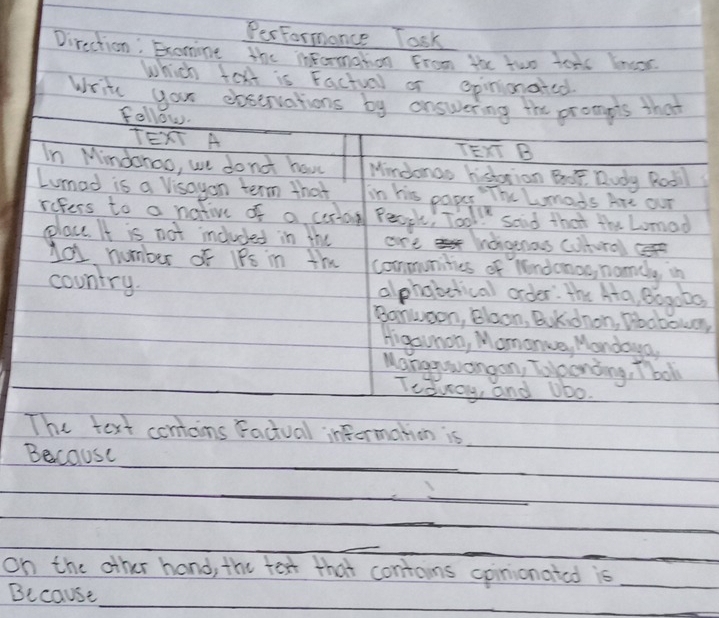 Performance Task
Direction: Examine the information from the two texts
Which text is Factual or opinionated.
Write your observations by answering the prompts that
Follow.
TEXT A
In Mindanao, we donot have
Lumad is a Visayan term that
refers to a native of a certain
place. It is not included in the
101 number of IPs in the
country.
TEXT B
Mindanao historian Prof. Rudy Rodil
in his paper "The Lumads Are our
People, Too!." said that the Lumad
are Indigenous Cultural
communities of Mindanao, namely, in
alphabetical order: the Ata, Bagobo,
Banwaon, Blaan, Bukidnon, Dibabawon,
Higaunon, Mamanwa, Mandaya,
Mangguwangan, Talaandig, T'boli
Teduray, and Ubo.
The text contains Factual information is
Because
On the other hand, the text that contains opinionated is
Because